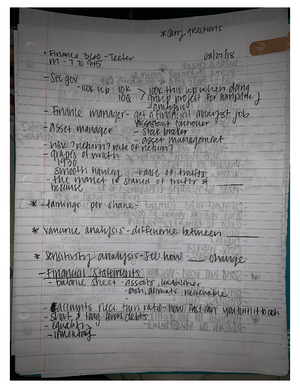 * Carry questions
• Finance 340 - Teeter 08/27/18
M - 7
- Sec.gov
- look up 10K > look this up when doing
10Q group project for company
- analysis
- Finance manager - get a financial analyst job
- asset manager - stock broker
- asset management
- risk? return? rate of return?
- grapes of wrath
- 1930
- smoot hawley - raise of tariffs
- the market is scared of tariffs
because
* earnings per share -
* variance analysis - difference between
* sensitivity analysis - see how change
- Financial Statements
- balance sheet - assets, liabilities
- cash, accounts receivable
accounts rec. turn ratio - how fast can you turn it to cash
- short & long term debts
- equity
- inventory